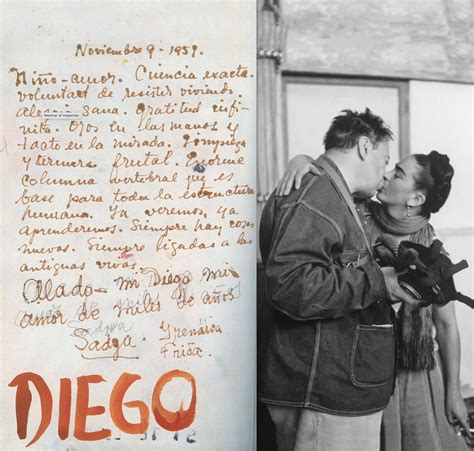 Noviembre 9 - 1951.
Niño-amor. Ciencia exacta.
voluntad de resistir viviendo
sana. Gratitud infi-
Mostrar el inspector
nita. Ojos en las manos y
tacto en la mirada. Limpieza
y ternura frutal. Enorme
columna vertebral que es
base para toda la estructura
humana. Ya veremos, ya
aprenderemos. Siempre hay cosas
nuevas. Siempre ligadas a las
antiguas vivas.
Alado - mi Diego mi
amor de miles de años
Sadga. Yrenáica
Frida.
DIEGO